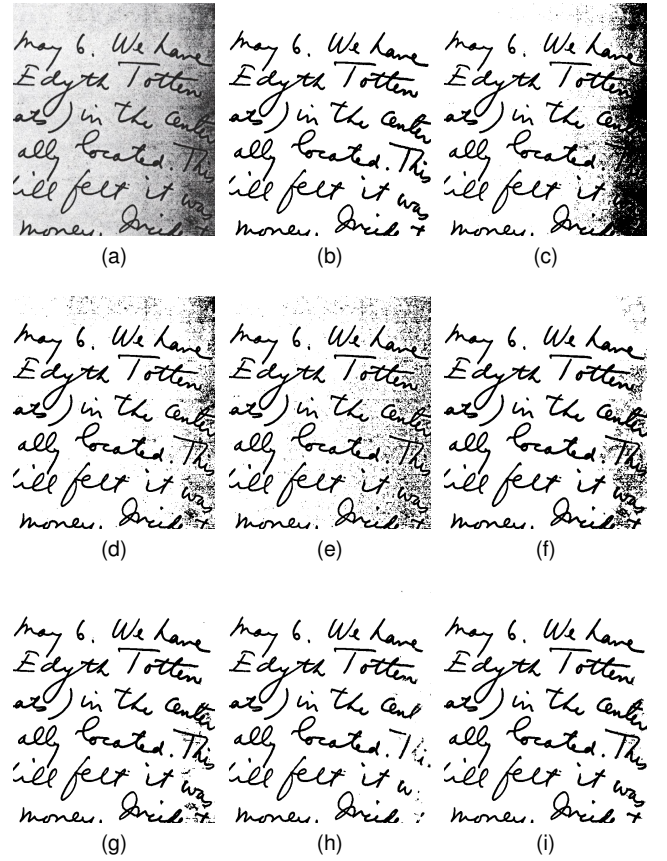 may 6. We have
Edyth Totten
ats) in the center
ally located. This
ill felt it was
money. Inside +
(a)
may 6. We have
Edyth Totten
ats) in the center
ally located. This
ill felt it was
money. Inside +
(b)
may 6. We have
Edyth Totten
ats) in the
ally located.
ill felt it
money. Inside
(c)
may 6. We have
Edyth Totten
ats) in the center
ally located. This
ill felt it was
money. Inside +
(d)
may 6. We have
Edyth Totten
ats) in the center
ally located. This
ill felt it was
money. Inside +
(e)
may 6. We have
Edyth Totten
ats) in the center
ally located. This
ill felt it was
money. Inside +
(f)
may 6. We have
Edyth Totten
ats) in the center
ally located. This
ill felt it was
money. Inside +
(g)
may 6. We have
Edyth Totten
ats) in the cent
ally located.
ill felt it w
money. Inside
(h)
may 6. We have
Edyth Totten
ats) in the center
ally located. This
ill felt it was
money. Inside +
(i)